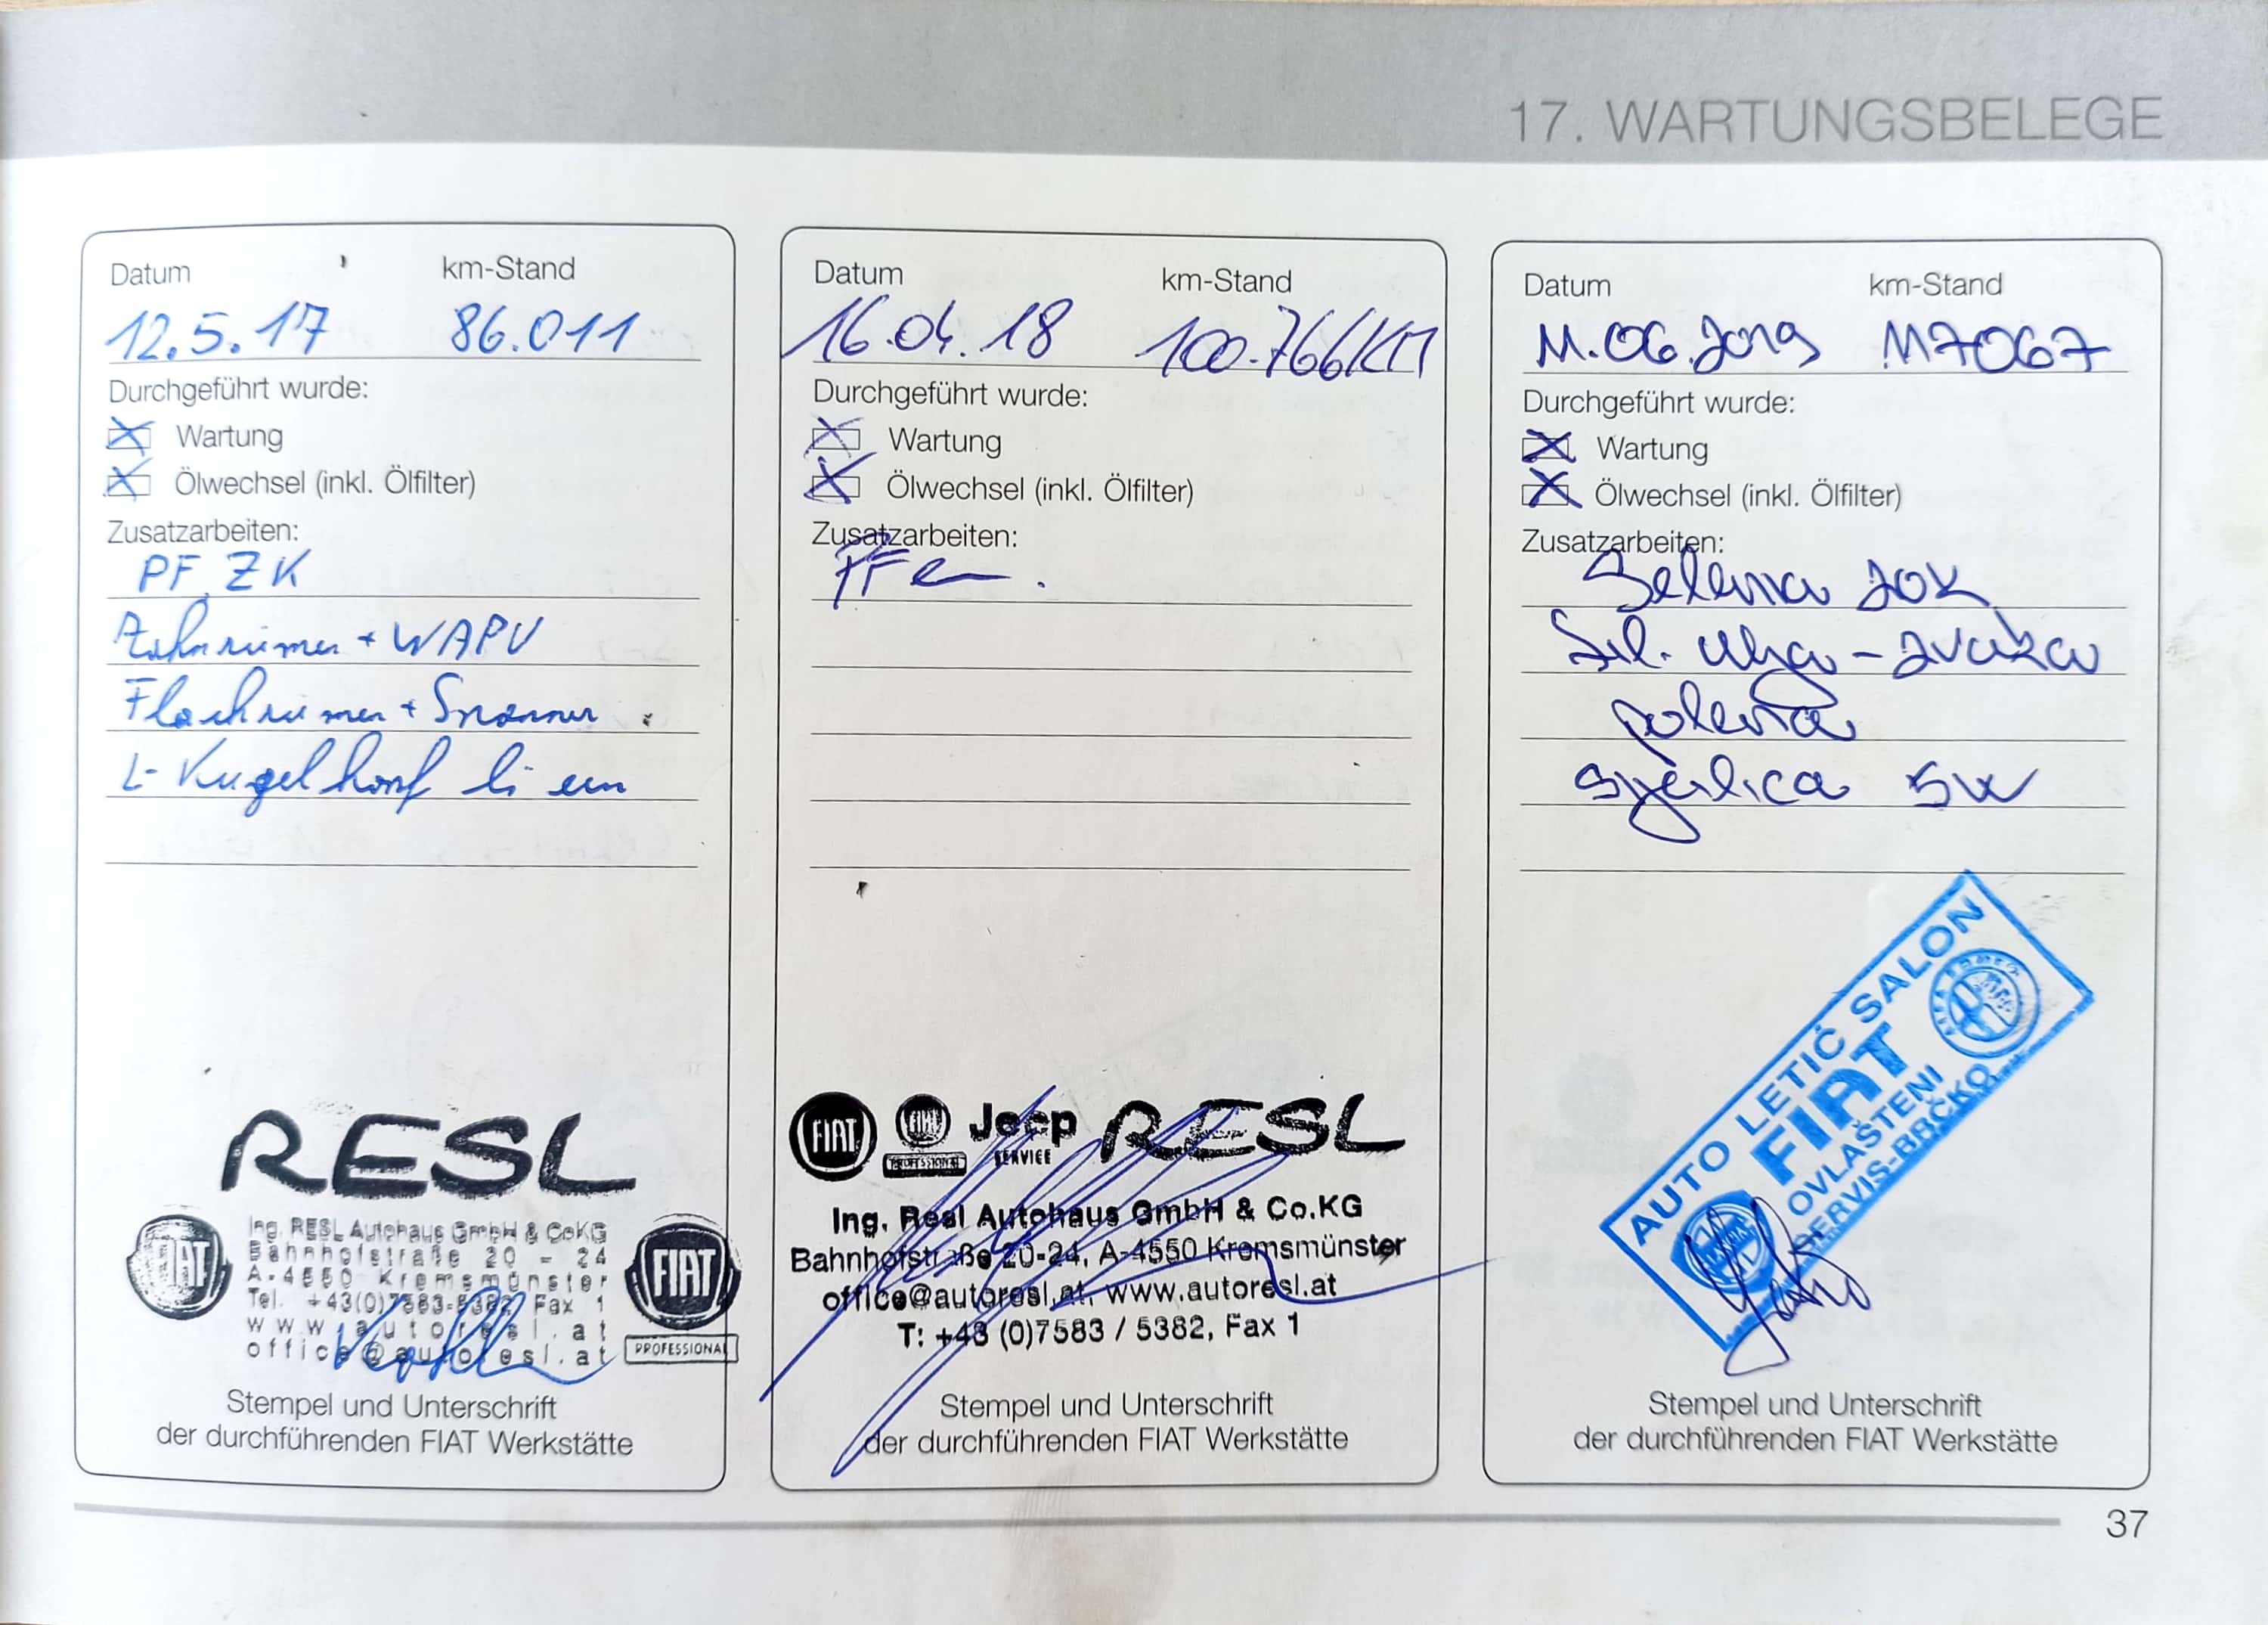 17. WARTUNGSBELEGE
Datum km-Stand
12.5.17 86.011
Durchgeführt wurde:
Wartung
Ölwechsel (inkl. Ölfilter)
Zusatzarbeiten:
PF, ZK
Zahnriemen + WAPU
Flachriemen + Spanner
L- Kugelkopf li
RESL
FIAT
Ing. RESL Autohaus GmbH & CoKG
Bahnhofstraße 20 - 24
A-4550 Kremsmünster
Tel. +43(0)7583-5382, Fax 1
www.autoresl.at
office@autoresl.at
FIAT
PROFESSIONAL
Stempel und Unterschrift
der durchführenden FIAT Werkstätte
Datum km-Stand
16.04.18 100.766KM
Durchgeführt wurde:
Wartung
Ölwechsel (inkl. Ölfilter)
Zusatzarbeiten:
FIAT FIAT PROFESSIONAL Jeep SERVICE RESL
Ing. Resl Autohaus GmbH & Co.KG
Bahnhofstraße 20-24, A-4550 Kremsmünster
office@autoresl.at, www.autoresl.at
T: +43 (0)7583 / 5382, Fax 1
Stempel und Unterschrift
der durchführenden FIAT Werkstätte
Datum km-Stand
11.06.2019 117067
Durchgeführt wurde:
Wartung
Ölwechsel (inkl. Ölfilter)
Zusatzarbeiten:
Selenia 20K
fil. ulja - zraka
polena
sijalica 5W
AUTO LETIĆ SALON
FIAT
OVLAŠTENI
SERVIS-BRČKO
Stempel und Unterschrift
der durchführenden FIAT Werkstätte
37